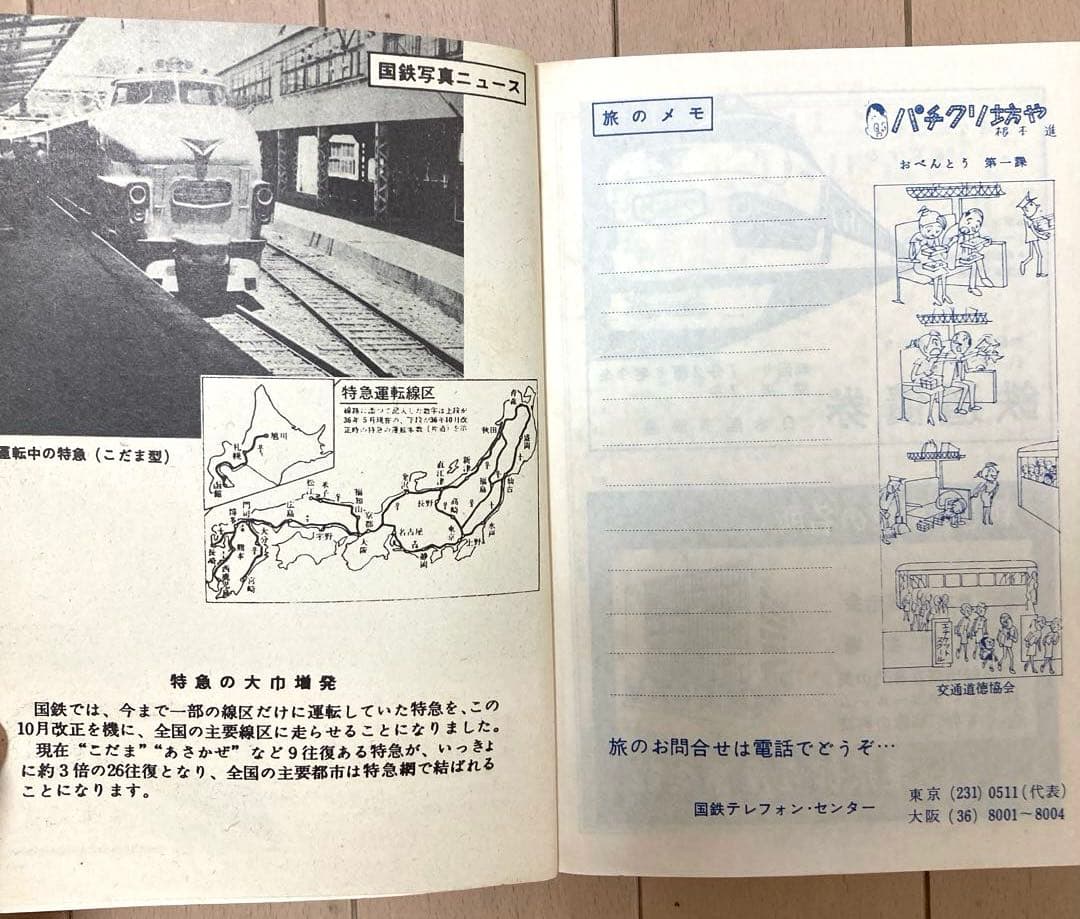 国鉄写真ニュース
運転中の特急（こだま型）
特急運転線区
線路に沿って記入した数字は上段が
36年5月現在の、下段が36年10月改
正時の特急の運転本数（片道）を示
旭川
札幌
函館
青森
秋田
盛岡
新津
直江津
仙台
福島
金沢
長野
高崎
水戸
上野
東京
静岡
名古屋
京都
大阪
福知山
米子
松江
広島
宇野
門司
博多
大分
熊本
長崎
西鹿児島
宮崎
特急の大巾増発
国鉄では、今まで一部の線区だけに運転していた特急を、この
10月改正を機に、全国の主要線区に走らせることになりました。
現在“こだま”“あさかぜ”など9往復ある特急が、いっきょ
に約3倍の26往復となり、全国の主要都市は特急網で結ばれる
ことになります。
旅のメモ
パチクリ坊や
根本進
おべんとう 第一課
エチケットスクール
交通道徳協会
旅のお問合せは電話でどうぞ…
国鉄テレフォン・センター
東京 (231) 0511（代表）
大阪 (36) 8001〜8004